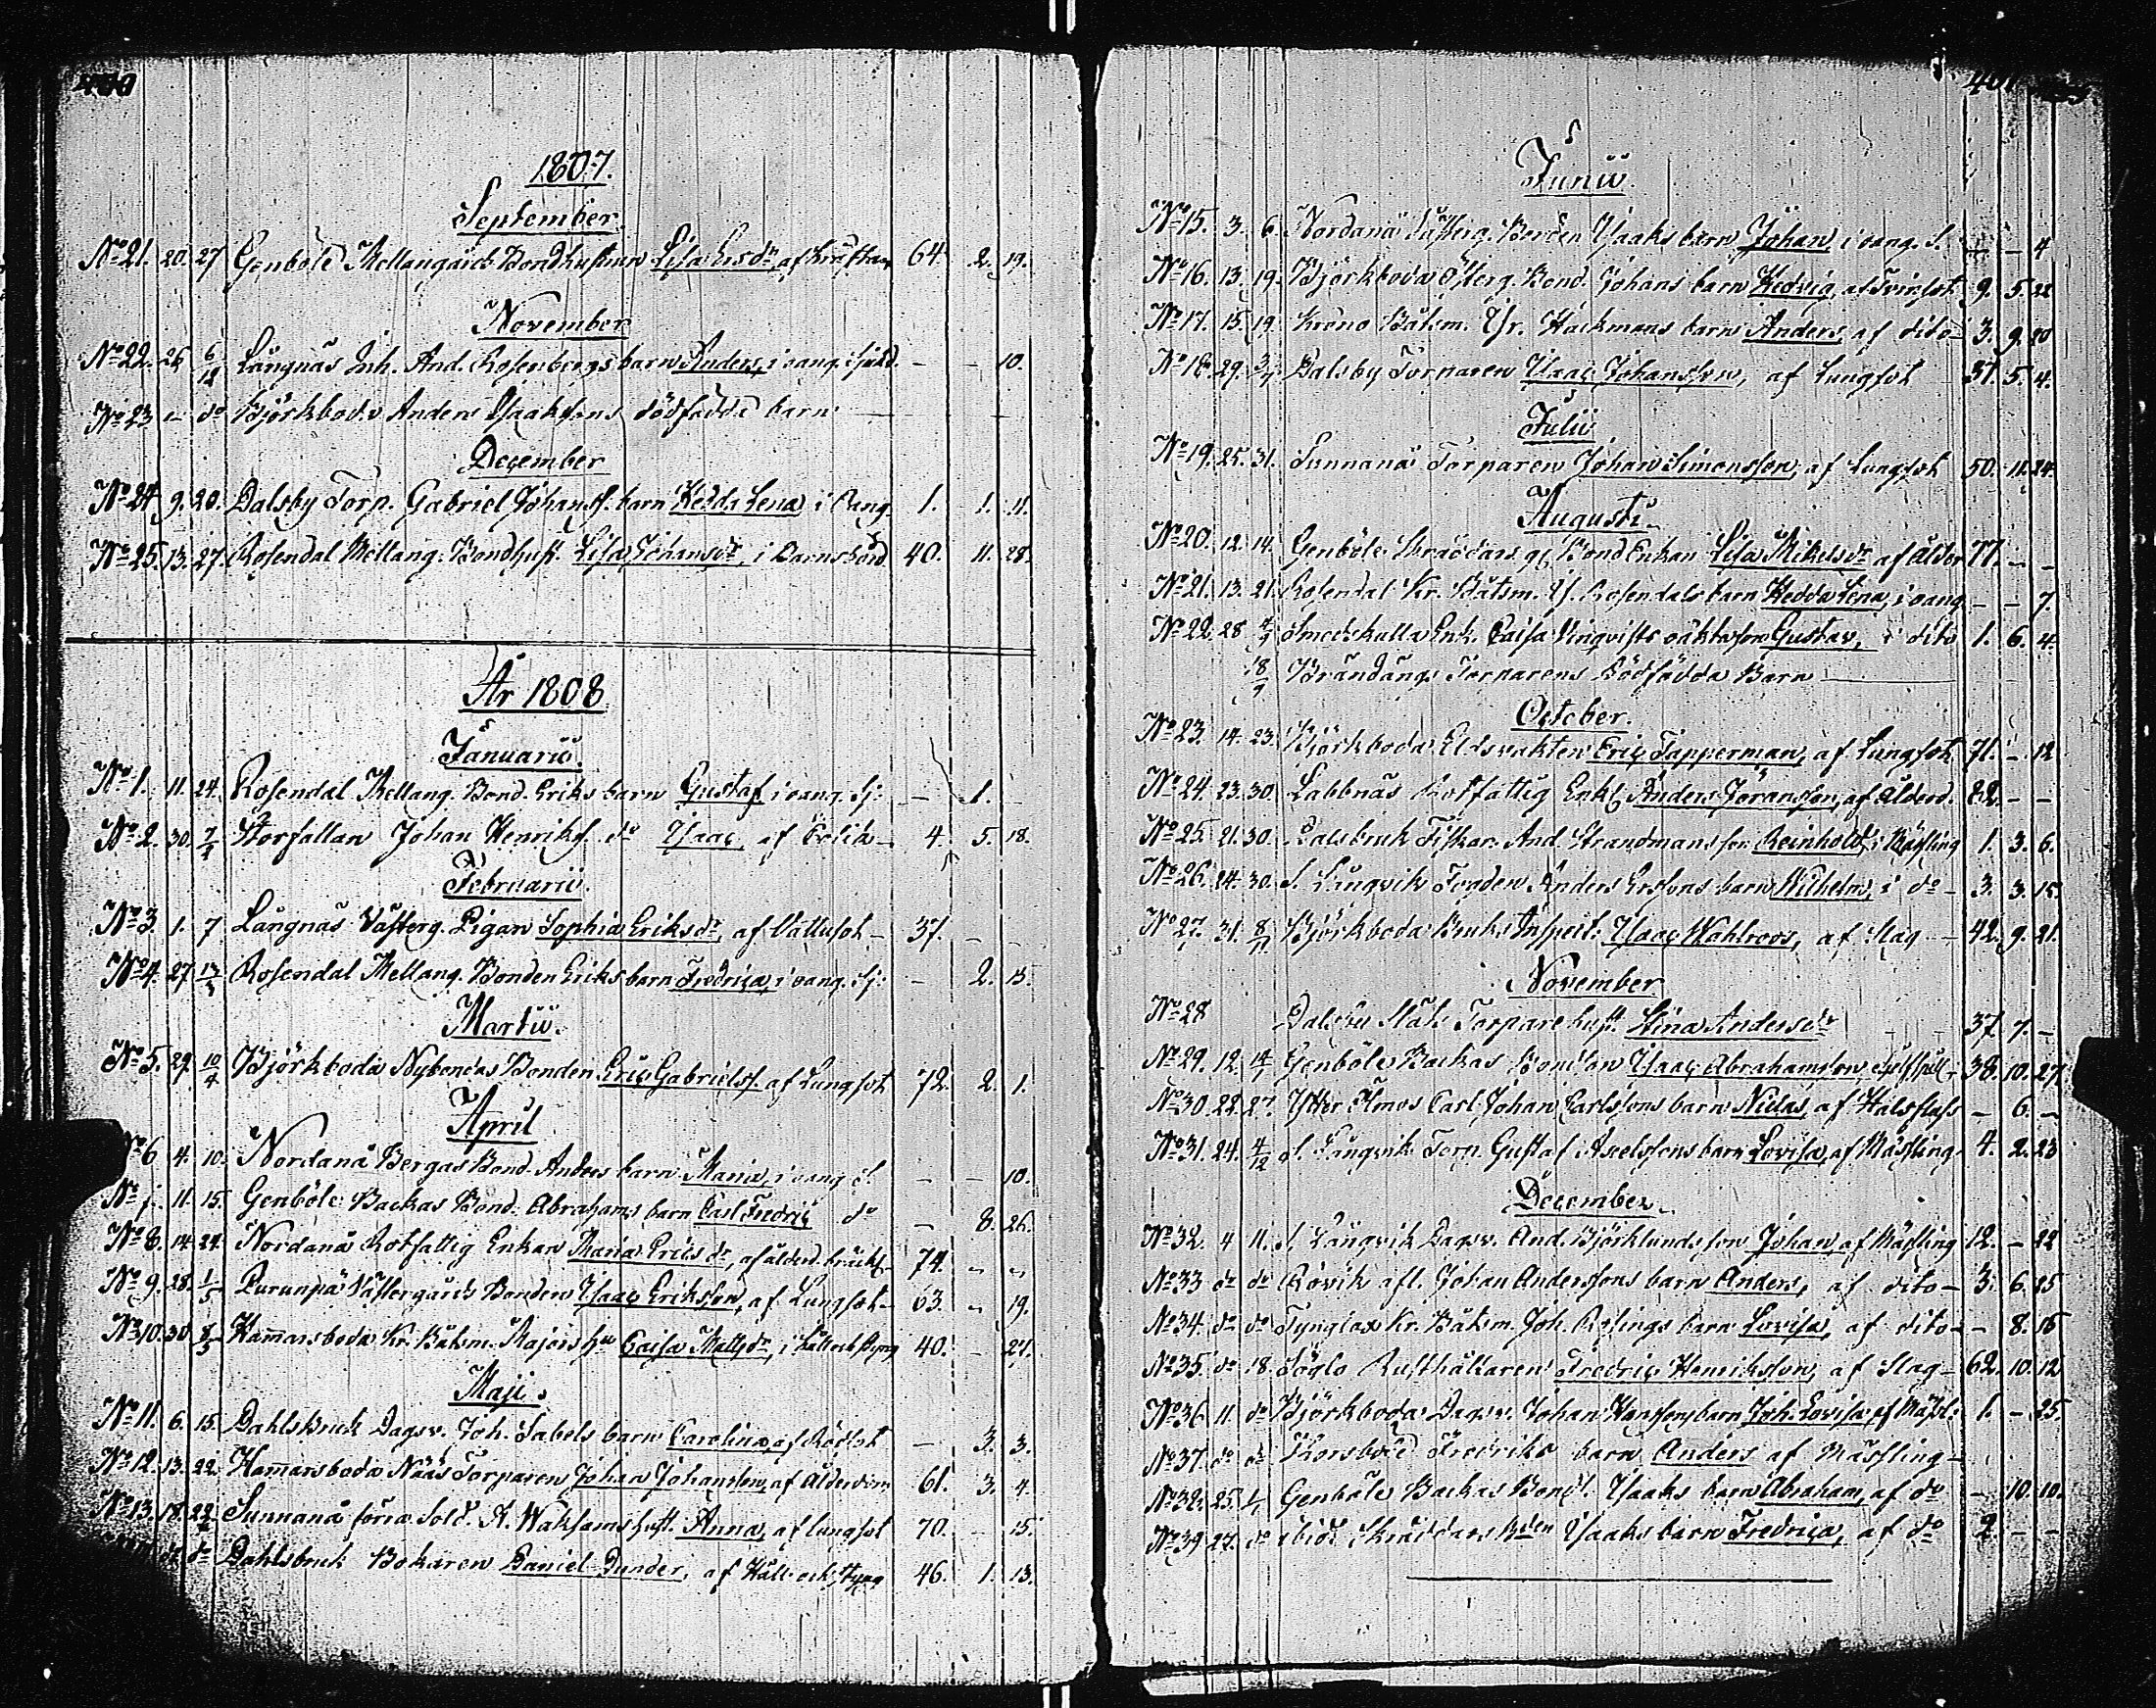 400
1807.
September.
No 21. 20. 27 Genböle Mellangårds Bondhustrun Lisa Ersdr, af Kräftan 64. 2. 19.
November
No 22. 26 6/12 Långnäs Inh. And. Rosenbergs barn Anders, i oang. sjukd. - - 10.
No 23 " do Björkboda Anders Isaaksons dödfödda barn
December
No 24 9. 20. Dalsby Torp. Gabriel Johanss. barn Hedda Lena i oang. 1. 1. 11.
No 25. 13. 27. Rosendal Mellang. Bondhust. Lisa Johansdr, i Barnsbörd 40. 11. 28.
År 1808
Januarii.
No 1. 11. 24. Rosendal Mellang. Bond. Eriks barn Gustaf i oang. sj: - 1. -
No 2. 30. 7/2 Storfallan Johan Henrikss. do Isaac, af Colik - 4. 5. 18.
Februarii.
No 3. 1. 7 Långnäs Västerg. Pigan Sophia Eriksdr, af Vattusot - 37. - -
No 4. 27 13/3 Rosendal Mellang. Bonden Eriks barn Fredrica, i oang. sj: - 2. 15.
Martii.
No 5. 29. 10/4 Björkboda Nybondas Bonden Eric Gabrielss. af Lungsot 72. 2. 1.
April
No 6 4. 10. Nordanå Bergas Bond. Anders barn Maria, i oang S. - - 10.
No 7. 11. 15. Genböle Backas Bond. Abrahams barn Carl Fredric do - 8. 26.
No 8. 14. 24. Nordanå Rotfattig Enkan Maria Ericsdr, af ålderd. bräckl. 74. " "
No 9. 28. 1/5 Purunpä Västergårds Bonden Isaac Eriksson, af Lungsot - 63. " 19.
No 10. 30 8/5 Hamarsboda Kr. Båtsm. Majors hu Caisa Mattsdr, i Håll och styng 40. - 24.
Maji.
No 11. 6. 15. Dahlsbruk Dagsv. Joh. Sabels barn Carolina, af Rödsot - 3. 3.
No 12. 13. 22. Hamarsboda Näås Torparen Johan Johansson, af Ålderdom 61. 3. 4.
No 13. 18. 22. Sunnanå förra Sold. A. Waksams hust. Anna, af lungsot 70. - 15.
do do Dahlsbruk Bokaren Daniel Dunder, af Håll och styng 46. 1. 13.
401
Junii.
No 15. 3. 6. Nordanå Västerg. Bonden Isaaks barn Johan, i oang. S. - - 4
No 16. 13. 19. Björkboda Österg. Bond. Johans barn Hedvig, af Tvinsot 9. 5. 22
No 17. 15. 19. Krono Båtsm. Isr. Hackmans barn Anders, af dito - 3. 9. 20
No 18. 29. 3/7 Dalsby Torparen Isaac Johansson, af Lungsot 37. 5. 4.
Julii
No 19. 25. 31. Sunnanå Torparen Johan Simonsson, af Lungsot 50. 11. 24.
Augusti.
No 20. 12. 14. Genböle Skräddars Bond Enkan Lisa Mikelsdr af ålder 77. - -
No 21. 13. 21. Rosendal Kr. Båtsm. Is. Rosendals barn Hedda Lena, i oang - - 7.
No 22. 28 4/9 Smedskulla Enk. Caisa Vinqvists oäkta son Gustav, i dito 1. 6. 4.
18/9 Brändängs Torparens Dödfödda Barn
October.
No 23. 14. 23. Björkboda Eldsvakten Eric Tapperman, af Lungsot 71. - 12
No 24. 23. 30. Labbnäs Rotfattig Enkl. Anders Göransson, af Ålderd. 82 - -
No 25. 21. 30. Dalsbruk Fiskar. And. Strandmans son Reinhold, i Mässling 1. 3. 6.
No 26. 24. 30. S. Långvik Fogden Anders Erssons barn Wilhelm, i do - 3. 3. 15.
No 27. 31. 8/11 Björkboda Bruks Inspect: Isaac Wahlroos, af Slag - 42. 9. 21.
November
No 28 Torpare hust. Stina Andersdr 37. 7. -
No 29. 12. 14 Genböle Backas Bonden Isaac Abrahamsson, 38. 10. 27
No 30. 22. 27. Ytter Ölmos Carl Johan Carlssons barn Niclas, af Halsfluss - 6. -
No 31. 24. 4/12 S. Långvik Torp. Gustaf Axelssons barn Lovisa, af Mässling 4. 2. 23
December.
No 32. 4 11. S. Långvik Dagsv. And. Björklunds son Johan, af Mässling 12. - 22
No 33 do do Rövik afl. Johan Anderssons barn Anders, af dito - 3. 6. 25
No 34. do do Tynglax Kr. Båtsm. Joh. Rosings barn Lovisa, af dito - - 8. 16
No 35. do 18. Söglö Rusthållaren Fredric Henriksson, af Slag - 62. 10. 12
No 36 11. do Björkboda Dagsv. Johan Hanssons barn Joh. Lovisa af Mässl: 1. - 25.
No 37. do do Korsböle Fredriks barn Anders af Mässling -
No 38. 25. 1/1 Genböle Backas Bond. Isaaks barn Abraham, af do - 10. 10.
No 39 27. do ibid. Skräddars Bden Isaaks barn Fredrica, af do 2. - -